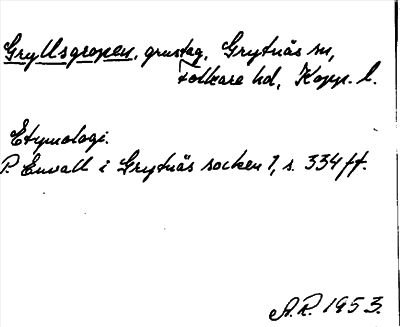 Gryllsgropen, grustag, Grytnäs sn,
Folkare hd, Kopp. l.
Etymologi.
P. Envall i Grytnäs socken 1, s. 334 ff.
A.R. 1953.